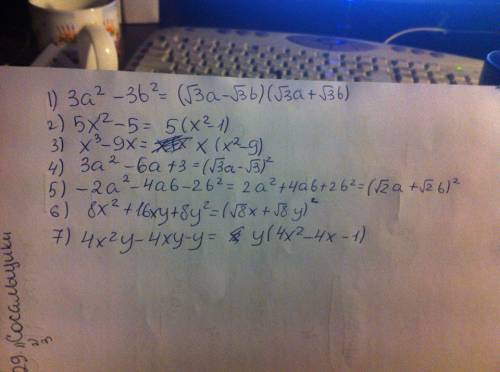 1) 3a² - 3b² = (√3a - √3b)(√3a + √3b)
2) 5x² - 5 = 5(x² - 1)
3) x³ - 9x = x (x² - 9)
4) 3a² - 6a + 3 = (√3a - √3)²
5) -2a² - 4ab - 2b² = 2a² + 4ab + 2b² = (√2a + √2b)²
6) 8x² + 16xy + 8y² = (√8x + √8y)²
7) 4x²y - 4xy - y = y(4x² - 4x - 1)
29. „Сосальщики